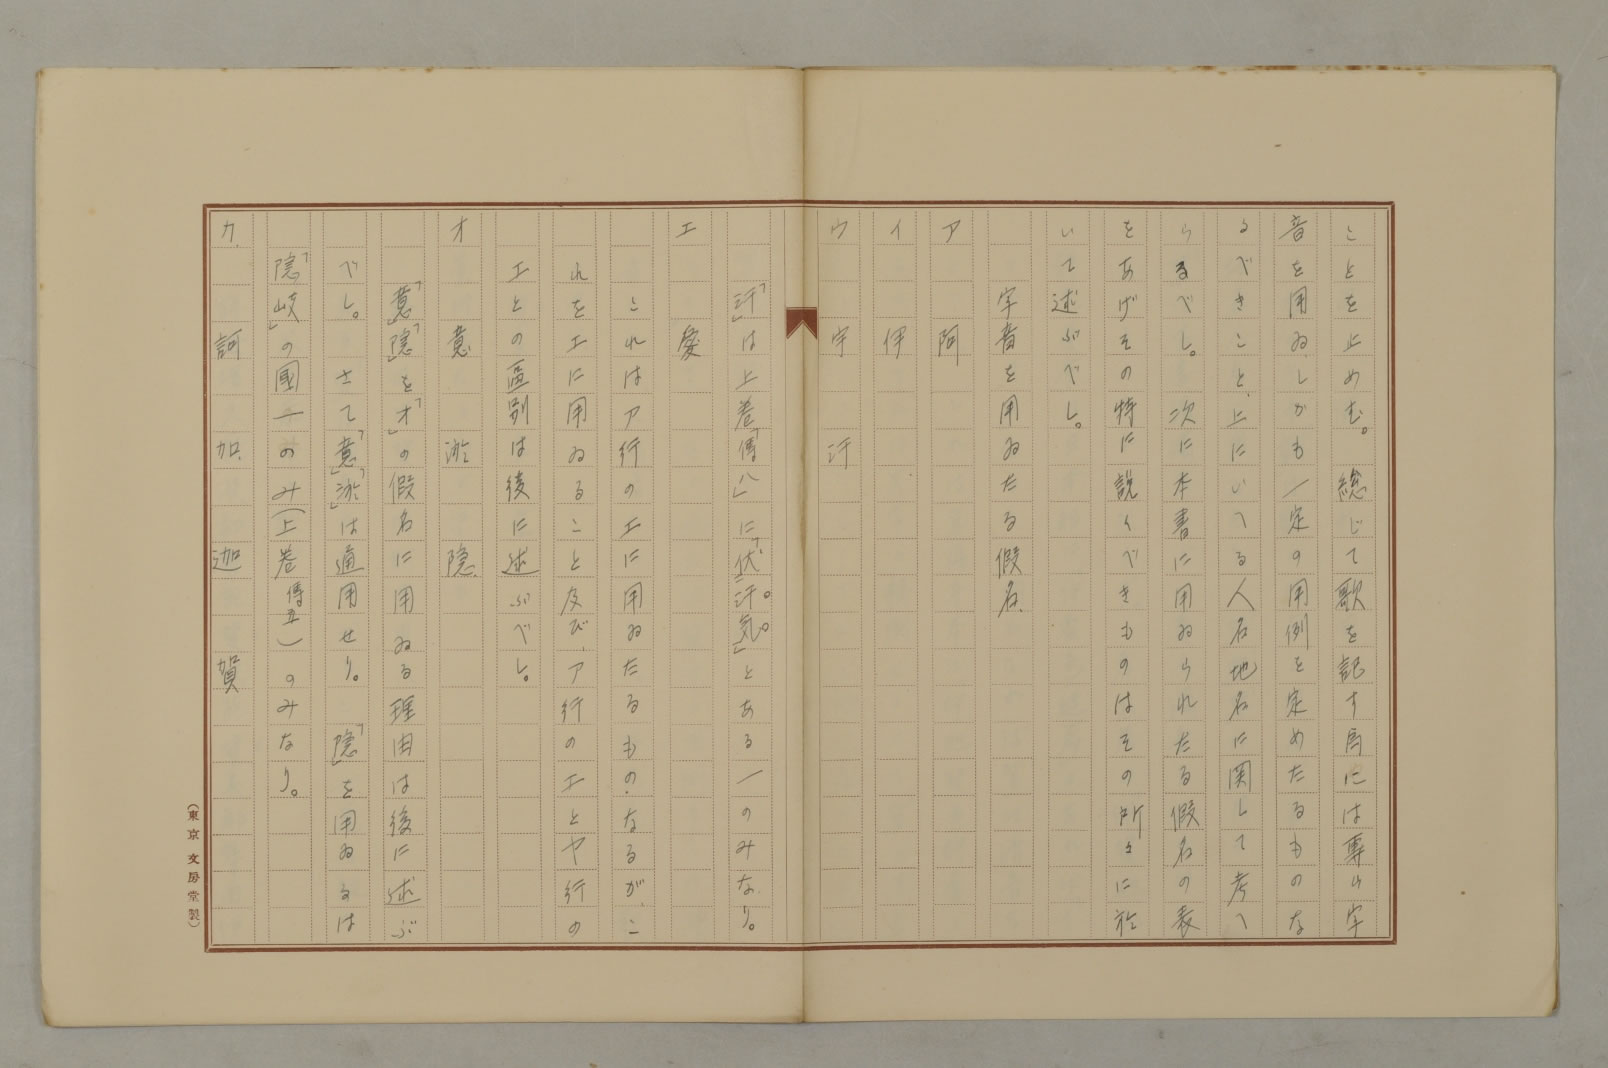 ことを止めむ。 総じて歌を記す為には專ら字
音を用ゐ、しかも一定の用例を定めたるものな
るべきこと、上にいへる人名地名に関して考へ
らるべし。 次に本書に用ゐられたる假名の表
をあげその特に説くべきものはその所々に於
いて述ぶべし。
字音を用ゐたる假名、
ア 阿
イ 伊
ウ 宇 汙
「汙」は上巻「傳八」に「伏汙気」とある一のみなり。
エ 愛
これはア行のエに用ゐたるもの、なるが、こ
れをエに用ゐること及び、ア行のエとヤ行の
エとの區别は後に述ぶべし。
オ 意 淤 隠
「意」「隠」を「オ」の假名に用ゐる理由は後に述ぶ
べし。 さて「意」「淤」は通用せり。 「隠」を用ゐるは
「隠岐」の國一のみ(上巻傳五)のみなり。
カ 訶 加 迦 賀
(東京 文房堂製)